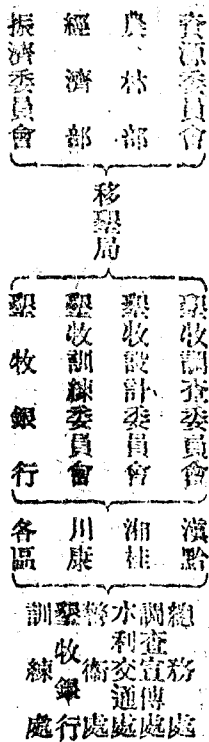 資源委員會
農林部
經濟部
振濟委員會
移墾局
墾牧調查委員會
墾牧設計委員會
墾牧訓練委員會
墾牧銀行
滇黔
湘桂
川康
各區
總務處
調查宣傳處
水利交通處
警衛處
墾牧銀行
訓練處